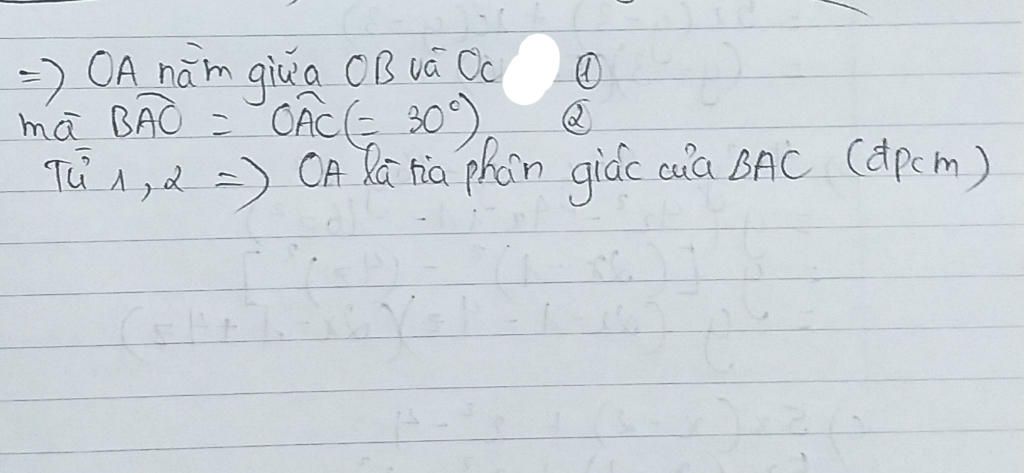 => OA nằm giữa OB và Oc ①
mà B̂AO = ÔAC (= 30°) ②
Từ 1, 2 => OA là tia phân giác của BAC (đpcm)